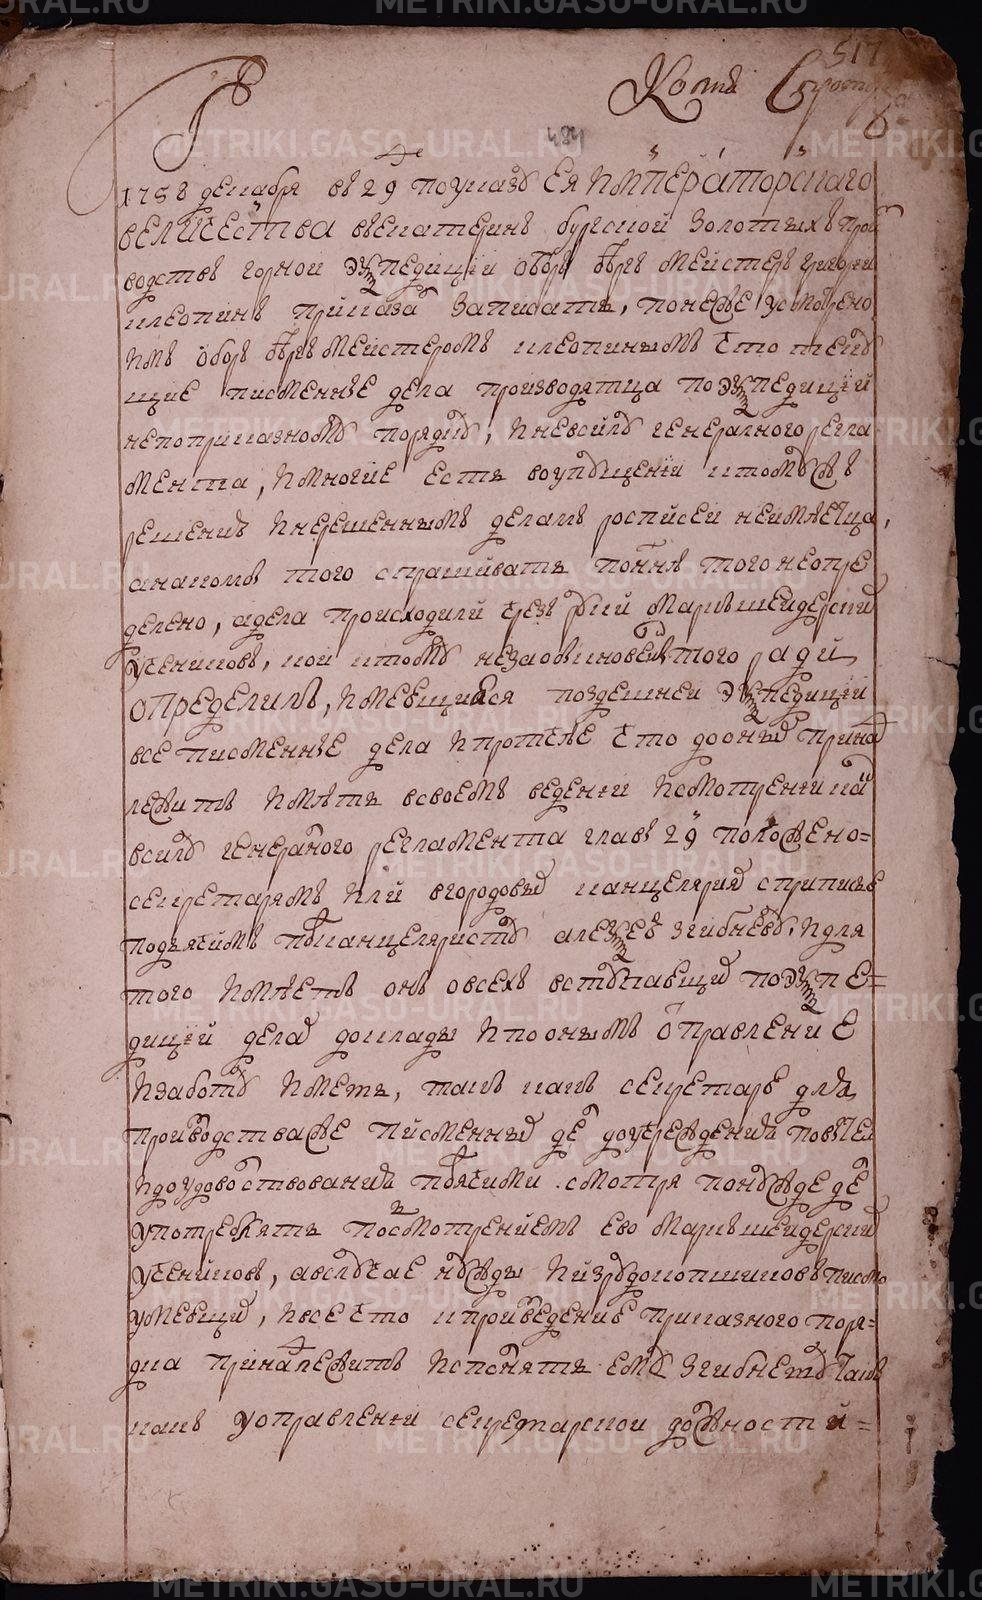 517
Копия
484
1758 декабря въ 29 по указу ЕЯ ИМПЕРАТОРСКАГО
ВЕЛИЧЕСТВА вЕкатеринъ бургской золотыхъ про
водствъ горной экспедиции оберъ бергъ мейстеръ григореи
клеопинъ приказа записать, понеже усмотрено
имъ оберъ бергъ мейстеромъ клеопинымъ что теку
щие писменные дела производятца по экспедиции
непоприказному порядку, и невсилу генералного регла
мента, и многие есть воупущении ктомужъ
решенымъ инерешеннымъ деламъ росписеи неимеетца,
анакомъ того спрашивать поныне того неопре
делено, адела происходили чрезъ руки маркшейдерских
учениковъ, кои ктому незаобыкновенны того ради
определилъ, имеющияся поздешнеи экспедиции
все писменные дела и протчее что дооных прина
лежитъ иметь всвоемъ ведении исмотрении на
всилу генералного регламента главы 29 положено=
секретарямъ или вгородовых канцелярияхъ сприписью
подъячимъ подканцеляристу алексею згибневу, и для
того иметь онъ овсехъ вступающих по экспе=
диции делах доклады и поонымъ отправление
изаботу иметь, такъ какъ секретарь для
производстважъ писменных делъ доучреждения повытеи
идоудоволствования подьячими смотря понужде делъ
употреблять посмотрениемъ ево маркшейдерских
учениковъ, авслучае нужды и изрудокопщиковъ писмо
умеющих, и все что кприведение приказного поря=
дка приналежитъ исполнять ему згибневу такъ
какъ уотправлении секретарской должности=
METRIKI.GASO-URAL.RU